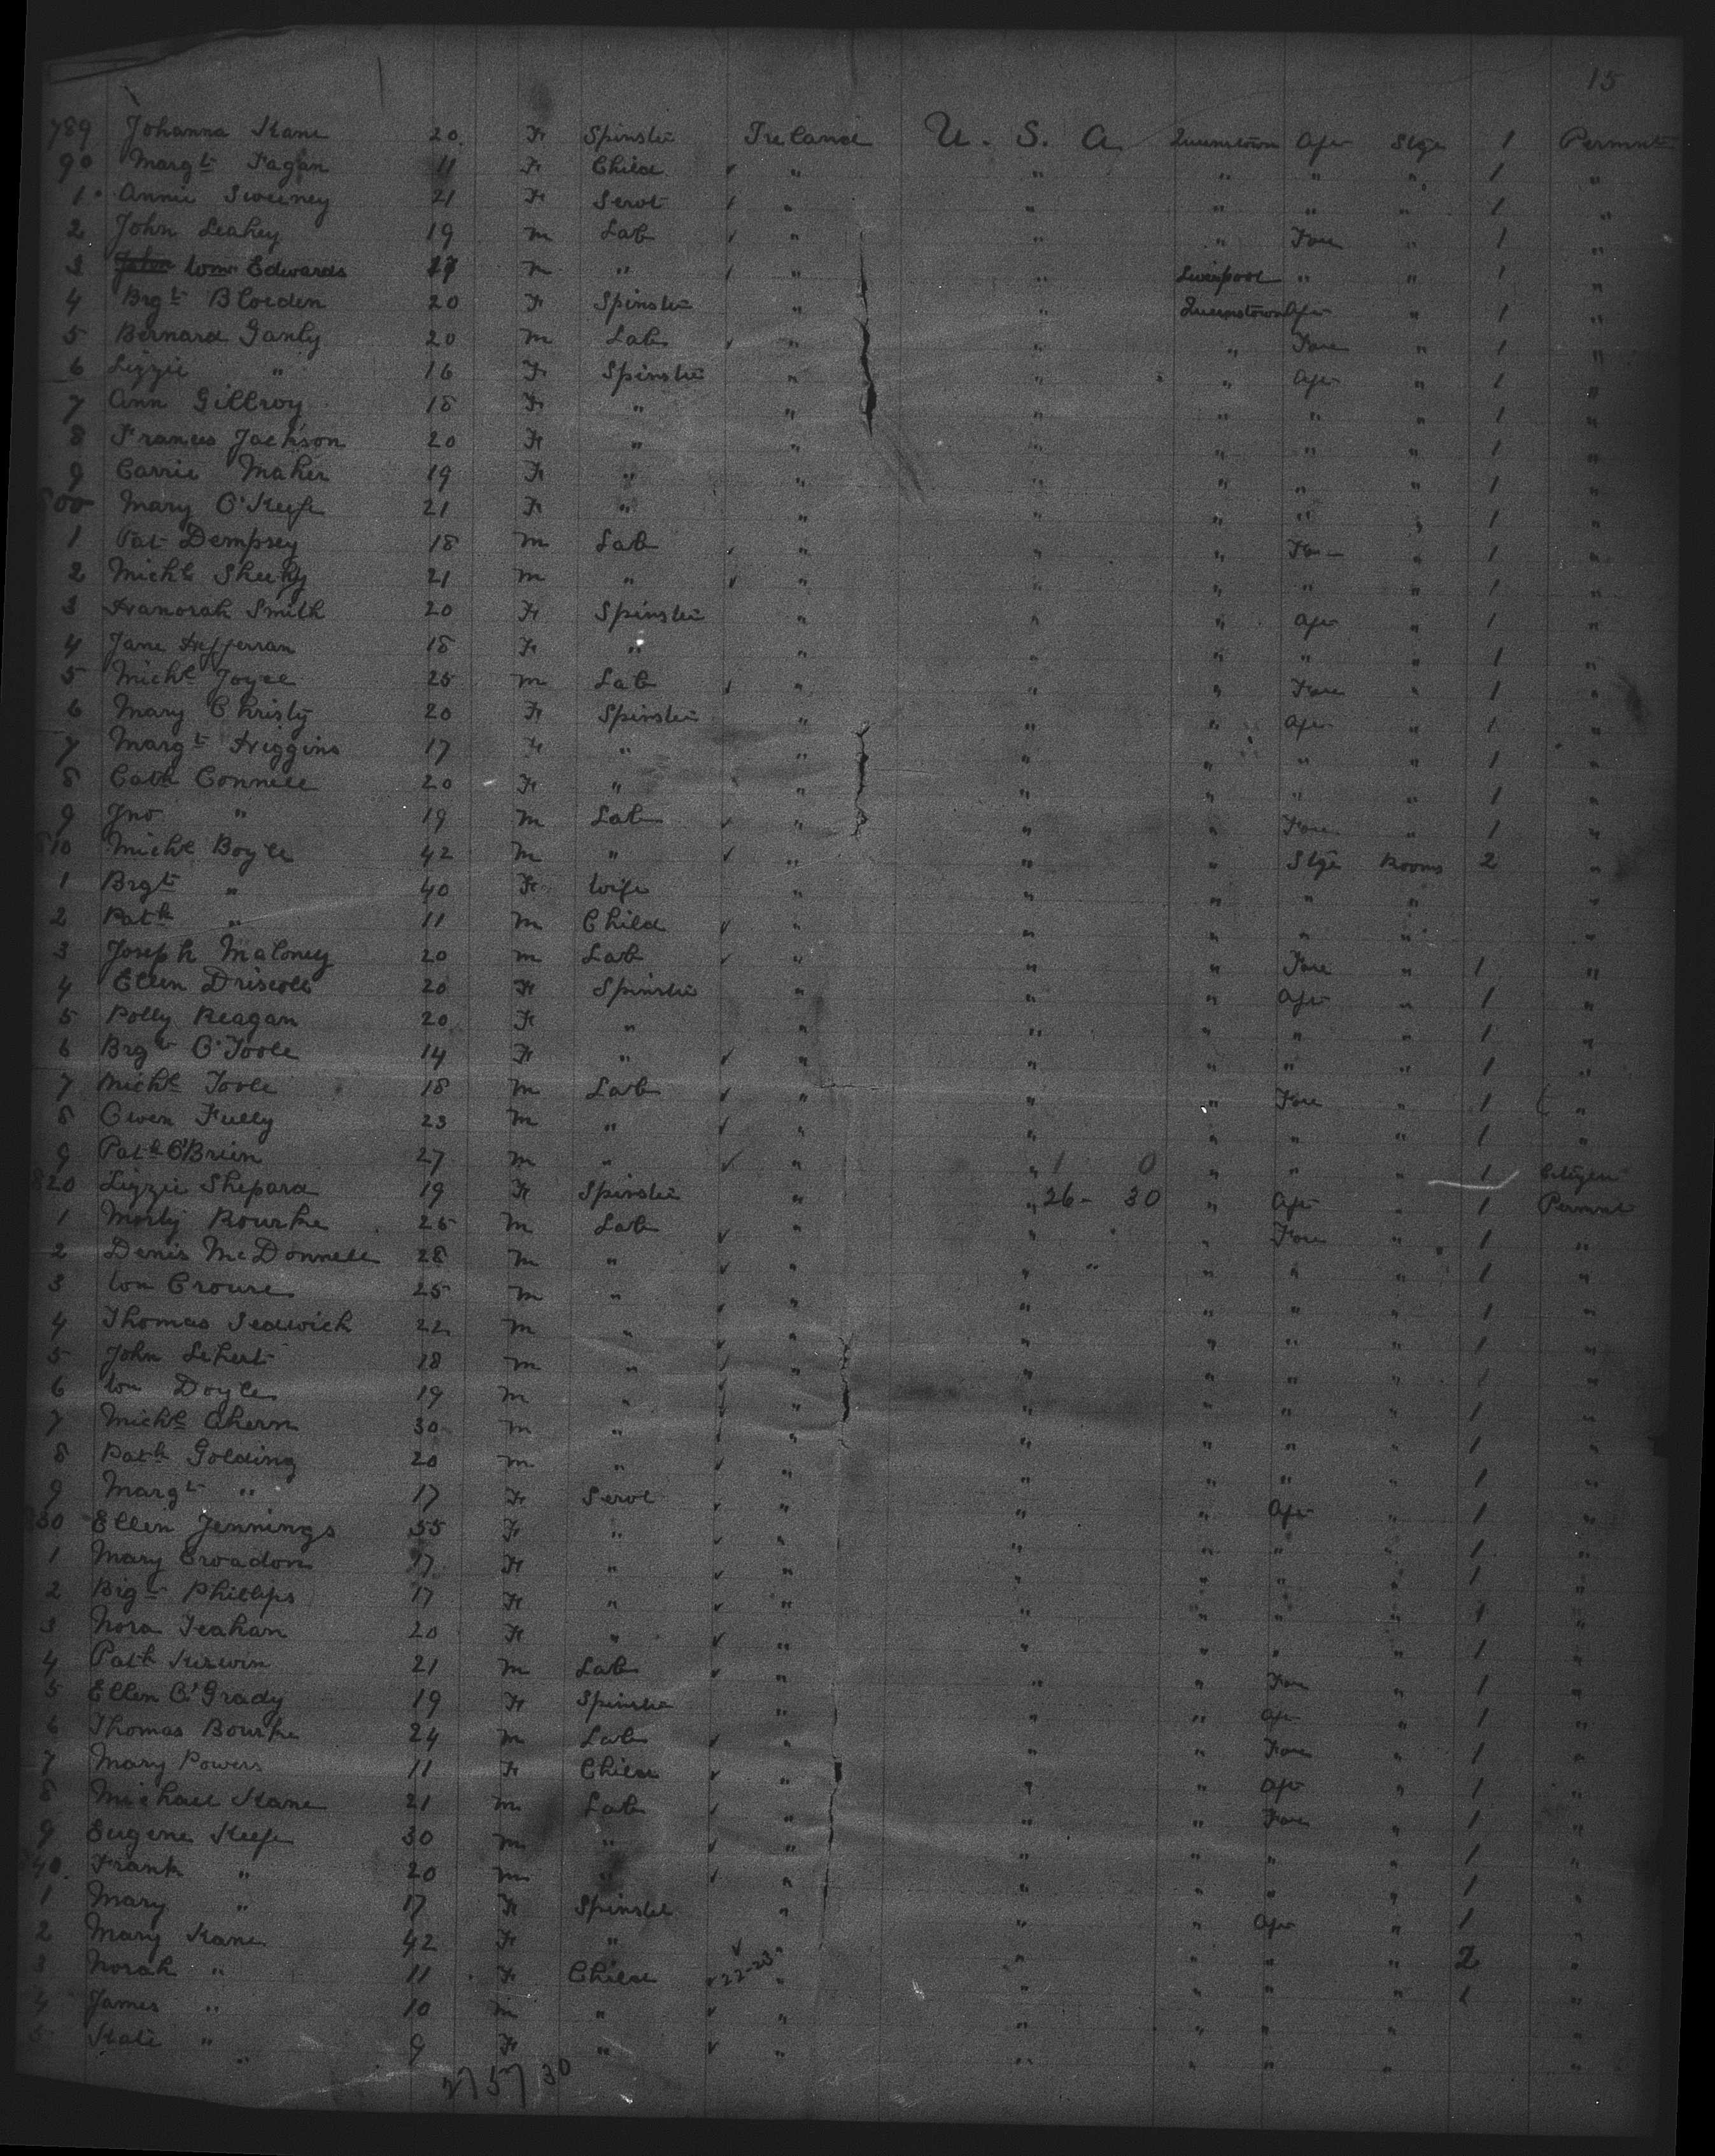 15
789 Johanna Kane 20 F Spinster Ireland U. S. A Queenstown Aft Stge 1 Permnt
90 Margt Fagan 11 F Child " " " " " 1 "
1 Annie Sweeney 21 F Servt " " " " " 1 "
2 John Leahey 19 m Lab " " " Fore " 1 "
3 Wm Edwards 17 m " " " Liverpool " " 1 "
4 Brgt 20 F Spinster " " Queenstown Aft " 1 "
5 Bernard Ganly 20 m Lab " " " Fore " 1 "
6 Lizzie " 16 F Spinster " " " Aft " 1 "
7 Ann Gillroy 18 F " " " " " " 1 "
8 Frances Jackson 20 F " " " " " " 1 "
9 Carrie Maher 19 F " " " " " " 1 "
800 Mary O'Keefe 21 F " " " " " " 1 "
1 Pat Dempsey 18 m Lab " " " Fore " 1 "
2 Michl Sheehy 21 m " " " " " " 1 "
3 Hanorah Smith 20 F Spinster " " " Aft " 1 "
4 Jane Hefferran 18 F " " " " " " 1 "
5 Michl Joyce 25 m Lab " " " Fore " 1 "
6 Mary Christy 20 F Spinster " " " Aft " 1 "
7 Margt Higgins 17 F " " " " " " 1 "
8 Cath Connell 20 F " " " " " " 1 "
9 Jno " 19 m Lab " " " Fore " 1 "
810 Michl Boyle 42 m " " " " Stge Rooms 2 "
1 Brgt " 40 F Wife " " " " " "
2 Patk " 11 m Child " " " " " "
3 Joseph Maloney 20 m Lab " " " Fore " 1 "
4 Ellen Driscoll 20 F Spinster " " " Aft " 1 "
5 Polly Reagan 20 F " " " " " " 1 "
6 Brgt O'Toole 14 F " " " " " " 1 "
7 Michl Toole 18 m Lab " " " Fore " 1 "
8 Owen Fully 23 m " " " " " " 1 "
9 Patk O'Brien 27 m " " " 1 0 " " " 1 Citizen
820 Lizzie Shepard 19 F Spinster " " 26 - 30 " Aft " 1 Permnt
1 Morty Rourke 25 m Lab " " " Fore " 1 "
2 Denis McDonnell 28 m " " " " " " 1 "
3 Wm 25 m " " " " " " 1 "
4 Thomas Sedwick 22 m " " " " " " 1 "
5 John 18 m " " " " " " 1 "
6 Wm Doyle 19 m " " " " " " 1 "
7 Michl Ahern 30 m " " " " " " 1 "
8 Patk Golding 20 m " " " " " " 1 "
9 Margt " 17 F Servt " " " Aft " 1 "
830 Ellen Jennings 55 F " " " " " " 1 "
1 Mary Croadon 17 F " " " " " " 1 "
2 Brigt Phillips 17 F " " " " " " 1 "
3 Nora Feahan 20 F " " " " " " 1 "
4 Patk Kirwin 21 m Lab " " " Fore " 1 "
5 Ellen O'Grady 19 F Spinster " " " Aft " 1 "
6 Thomas Bourke 24 m Lab " " " Fore " 1 "
7 Mary Powers 11 F Child " " " Aft " 1 "
8 Michael Kane 21 m Lab " " " Fore " 1 "
9 Eugene Keefe 30 m " " " " " " 1 "
40 Frank " 20 m " " " " " " 1 "
1 Mary " 17 F Spinster " " " Aft " 1 "
2 Mary Kane 42 F " " " " " " 2 "
3 Norah " 11 F Child 22-23 " " " " " 1 "
4 James " 10 m " " " " " " "
5 Kate " 9 F " " " " " " "
27 57 30